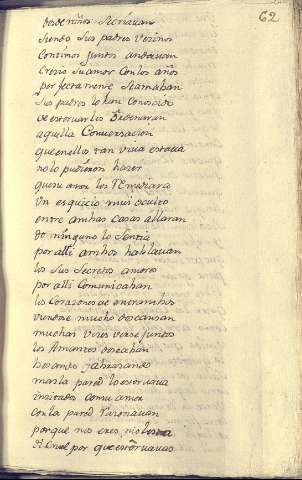 62
desde niños se criauan
siendo sus padres vezinos
Continos juntos andauan
Crezio su amor Con los años
perfectamente se amaban
sus padres lo han conocido
de estoruarlos
aquella Conuersacion
que en ellos tan viua estaua
no lo pudieron hazer
que su amor los
Un esquicio mui oculto
entre ambas casas allaron
do ninguno lo sentia
por alli ambos hablauan
los sus secretos amores
por alli Comunicaban
los Corazones de entrambos
viendose mucho descansan
muchas vezes verse juntos
los Amantes deseaban
besarse y abrazarse
mas la pared lo estoruaua
incitados con su amor
con la pared razonauan
porque nos eres molesta
di cruel por que estoruauas